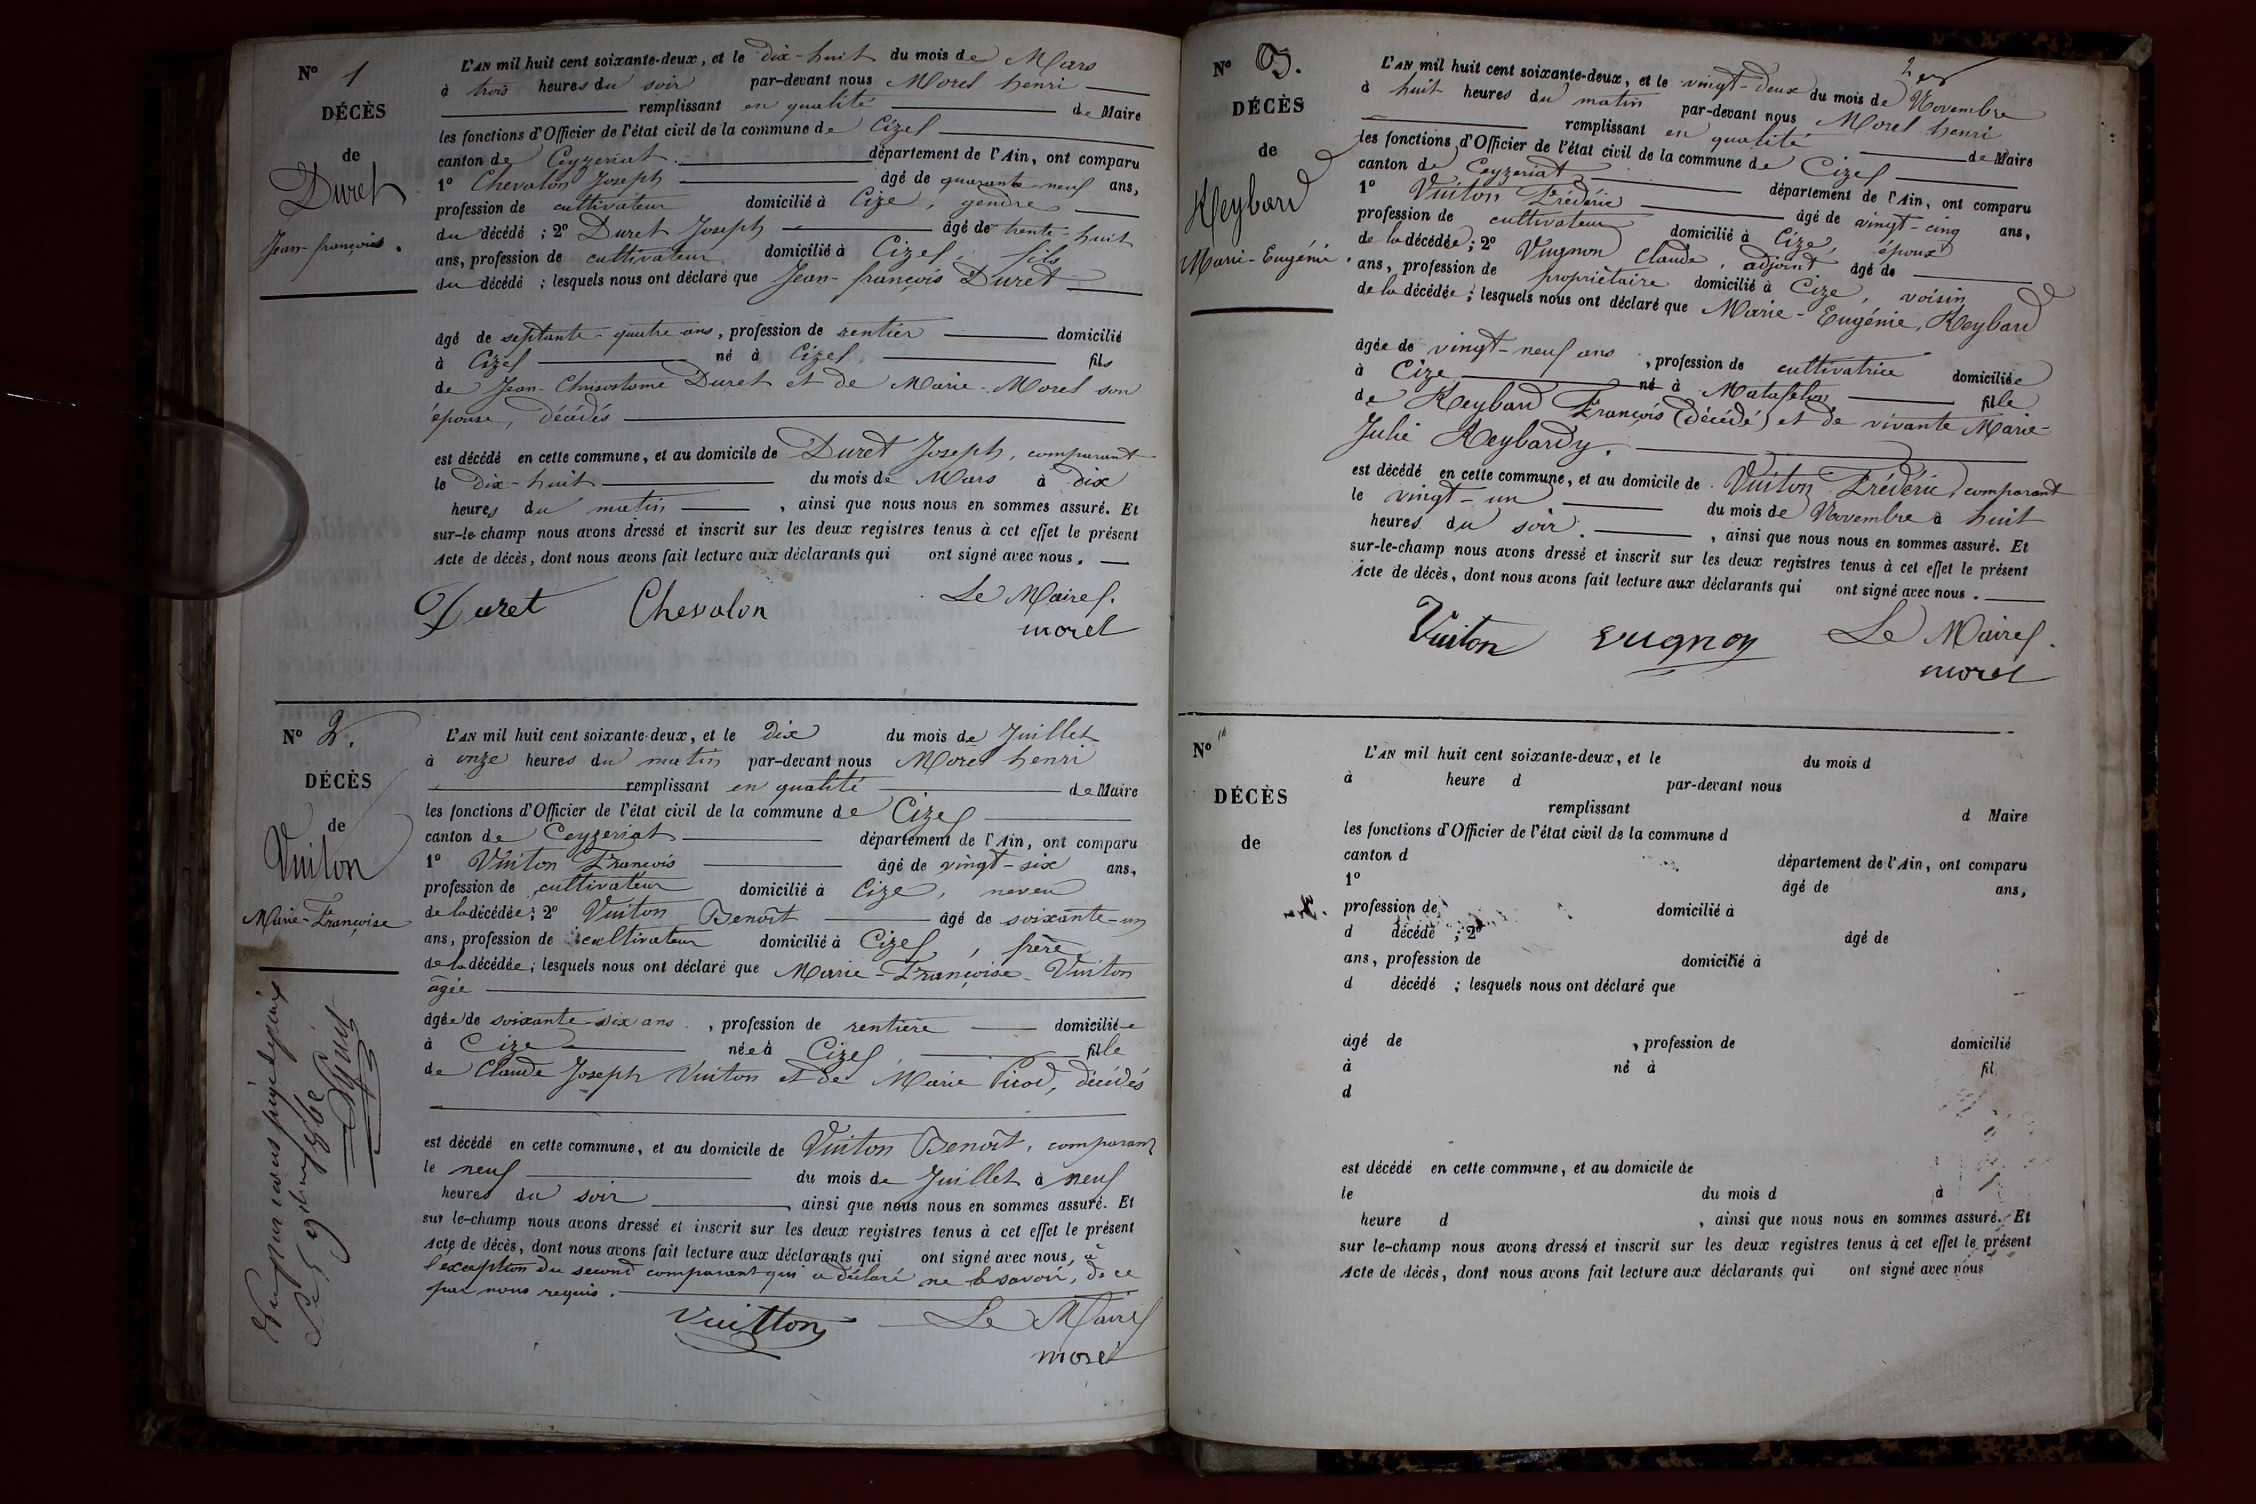 N° 1
DÉCÈS
de
Duret
Jean-françois.
L'AN mil huit cent soixante-deux, et le dix-huit du mois de Mars
à trois heures du soir par-devant nous Morel henri
remplissant en qualité de Maire
les fonctions d'Officier de l'état civil de la commune de Cize
canton de Ceyzeriat département de l'Ain, ont comparu
1° Chevalon Joseph âgé de quarante-neuf ans,
profession de cultivateur domicilié à Cize, gendre
du décédé ; 2° Duret Joseph âgé de trente-huit
ans, profession de cultivateur domicilié à Cize, fils
du décédé ; lesquels nous ont déclaré que Jean-françois Duret
âgé de septante-quatre ans, profession de rentier domicilié
à Cize né à Cize, fils
de Jean-Chrisostome Duret et de Marie Morel son
épouse, décédés
est décédé en cette commune, et au domicile de Duret Joseph, comparant
le dix-huit du mois de Mars à dix
heures du matin, ainsi que nous nous en sommes assuré. Et
sur-le-champ nous avons dressé et inscrit sur les deux registres tenus à cet effet le présent
Acte de décès, dont nous avons fait lecture aux déclarants qui ont signé avec nous.
Duret Chevalon Le Maire.
morel
N° 2.
DÉCÈS
de
Vuiton
Marie-Françoise
L'AN mil huit cent soixante-deux, et le dix du mois de Juillet
à onze heures du matin par-devant nous Morel henri
remplissant en qualité de Maire
les fonctions d'Officier de l'état civil de la commune de Cize
canton de Ceyzeriat département de l'Ain, ont comparu
1° Vuiton François âgé de vingt-six ans,
profession de cultivateur domicilié à Cize, neveu
de la décédée; 2° Vuiton Benoît âgé de soixante-un
ans, profession de cultivateur domicilié à Cize, frère
de la décédée; lesquels nous ont déclaré que Marie-Françoise Vuiton
âgée
âgée de soixante-dix ans, profession de rentière domiciliée
à Cize née à Cize, fille
de Claude Joseph Vuiton et de Marie Picod, décédés
est décédé en cette commune, et au domicile de Vuiton Benoît, comparant
le neuf du mois de Juillet à neuf
heures du soir, ainsi que nous nous en sommes assuré. Et
sur le-champ nous avons dressé et inscrit sur les deux registres tenus à cet effet le présent
Acte de décès, dont nous avons fait lecture aux déclarants qui ont signé avec nous, à
l'exception du second comparant qui a déclaré ne le savoir, de ce
par nous requis.
Vuitton Le Maire
morel
N° 3.
DÉCÈS
de
Reybard
Marie-Eugénie.
L'AN mil huit cent soixante-deux, et le vingt-deux du mois de Novembre
à huit heures du matin par-devant nous Morel henri
remplissant en qualité de Maire
les fonctions d'Officier de l'état civil de la commune de Cize
canton de Ceyzeriat département de l'Ain, ont comparu
1° Vuiton Frédéric âgé de vingt-cinq ans,
profession de cultivateur domicilié à Cize, époux
de la décédée; 2° Vugnon Claude, adjoint âgé de
ans, profession de propriétaire domicilié à Cize, voisin
de la décédée; lesquels nous ont déclaré que Marie-Eugénie, Reybard
âgée de vingt-neuf ans, profession de cultivatrice domiciliée
à Cize né à Matafelon fille
de Reybard François (décédé) et de vivante Marie-
Julie Reybardy.
est décédé en cette commune, et au domicile de Vuiton Fréderic, comparant
le vingt-un du mois de Novembre à huit
heures du soir., ainsi que nous nous en sommes assuré. Et
sur-le-champ nous avons dressé et inscrit sur les deux registres tenus à cet effet le présent
Acte de décès, dont nous avons fait lecture aux déclarants qui ont signé avec nous.
Vuiton Vugnon Le Maire.
morel
N°
DÉCÈS
de
L'AN mil huit cent soixante-deux, et le du mois d
à heure d par-devant nous
remplissant d Maire
les fonctions d'Officier de l'état civil de la commune d
canton d département de l'Ain, ont comparu
1° âgé de ans,
profession de domicilié à
d décédé ; 2° âgé de
ans, profession de domicilié à
d décédé ; lesquels nous ont déclaré que
âgé de , profession de domicilié
à né à fil
d
est décédé en cette commune, et au domicile de
le du mois d à
heure d , ainsi que nous nous en sommes assuré. Et
sur le-champ nous avons dressé et inscrit sur les deux registres tenus à cet effet le présent
Acte de décès, dont nous avons fait lecture aux déclarants qui ont signé avec nous